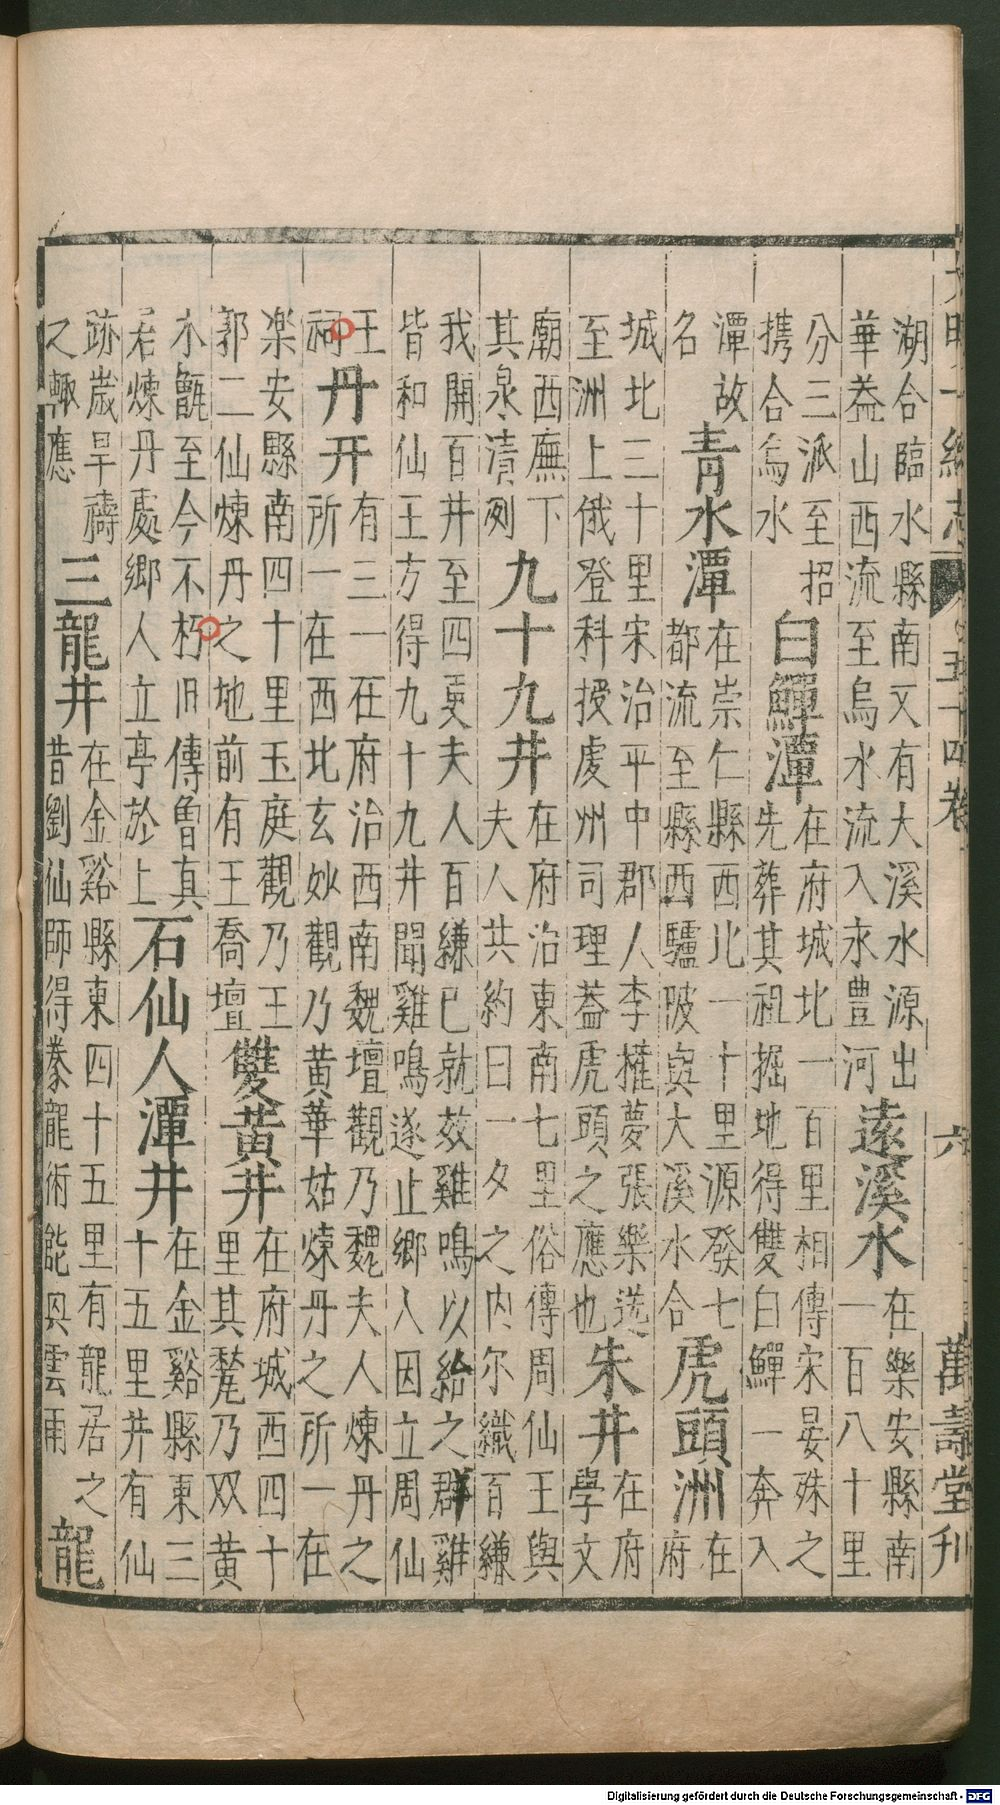 大明一統志 五十四卷 六 萬壽堂刊
湖合臨水縣南又有大溪水源出
華葢山西流至烏水流入永豊河
遠溪水
在樂安縣南
一百八十里
分三派至招
携合烏水
白鱓潭
在府城北一百里相傳宋晏殊之
先葬其祖掘地得雙白鱓一奔入
潭故
名
青水潭
在崇仁縣西北一十里源發七
都流至縣西驢陂與大溪水合
虎頭洲
在
府
城北三十里宋治平中郡人李權夢張樂送
至洲上俄登科授虔州司理葢虎頭之應也
朱井
在府
學文
廟西廡下
其泉清冽
九十九井
在府治東南七里俗傳周仙王與
夫人共約曰一夕之内尔織百縑
我開百井至四更夫人百縑已就效雞鳴以紿之群雞
皆和仙王方得九十九井聞雞鳴遂止鄉人因立周仙
王
祠
丹井
有三一在府治西南魏壇觀乃魏夫人煉丹之
所一在西北玄妙觀乃黄華姑煉丹之所一在
楽安縣南四十里玉庭觀乃王
郭二仙煉丹之地前有王喬壇
雙黄井
在府城西四十
里其甃乃双黄
木甑至今不朽旧傳魯真
君煉丹處鄉人立亭於上
石仙人潭井
在金谿縣東三
十五里井有仙
跡歲旱禱
之輙應
三龍井
在金谿縣東四十五里有龍居之
昔劉仙師得豢龍術能興雲雨
龍
Digitalisierung gefördert durch die Deutsche Forschungsgemeinschaft - DFG